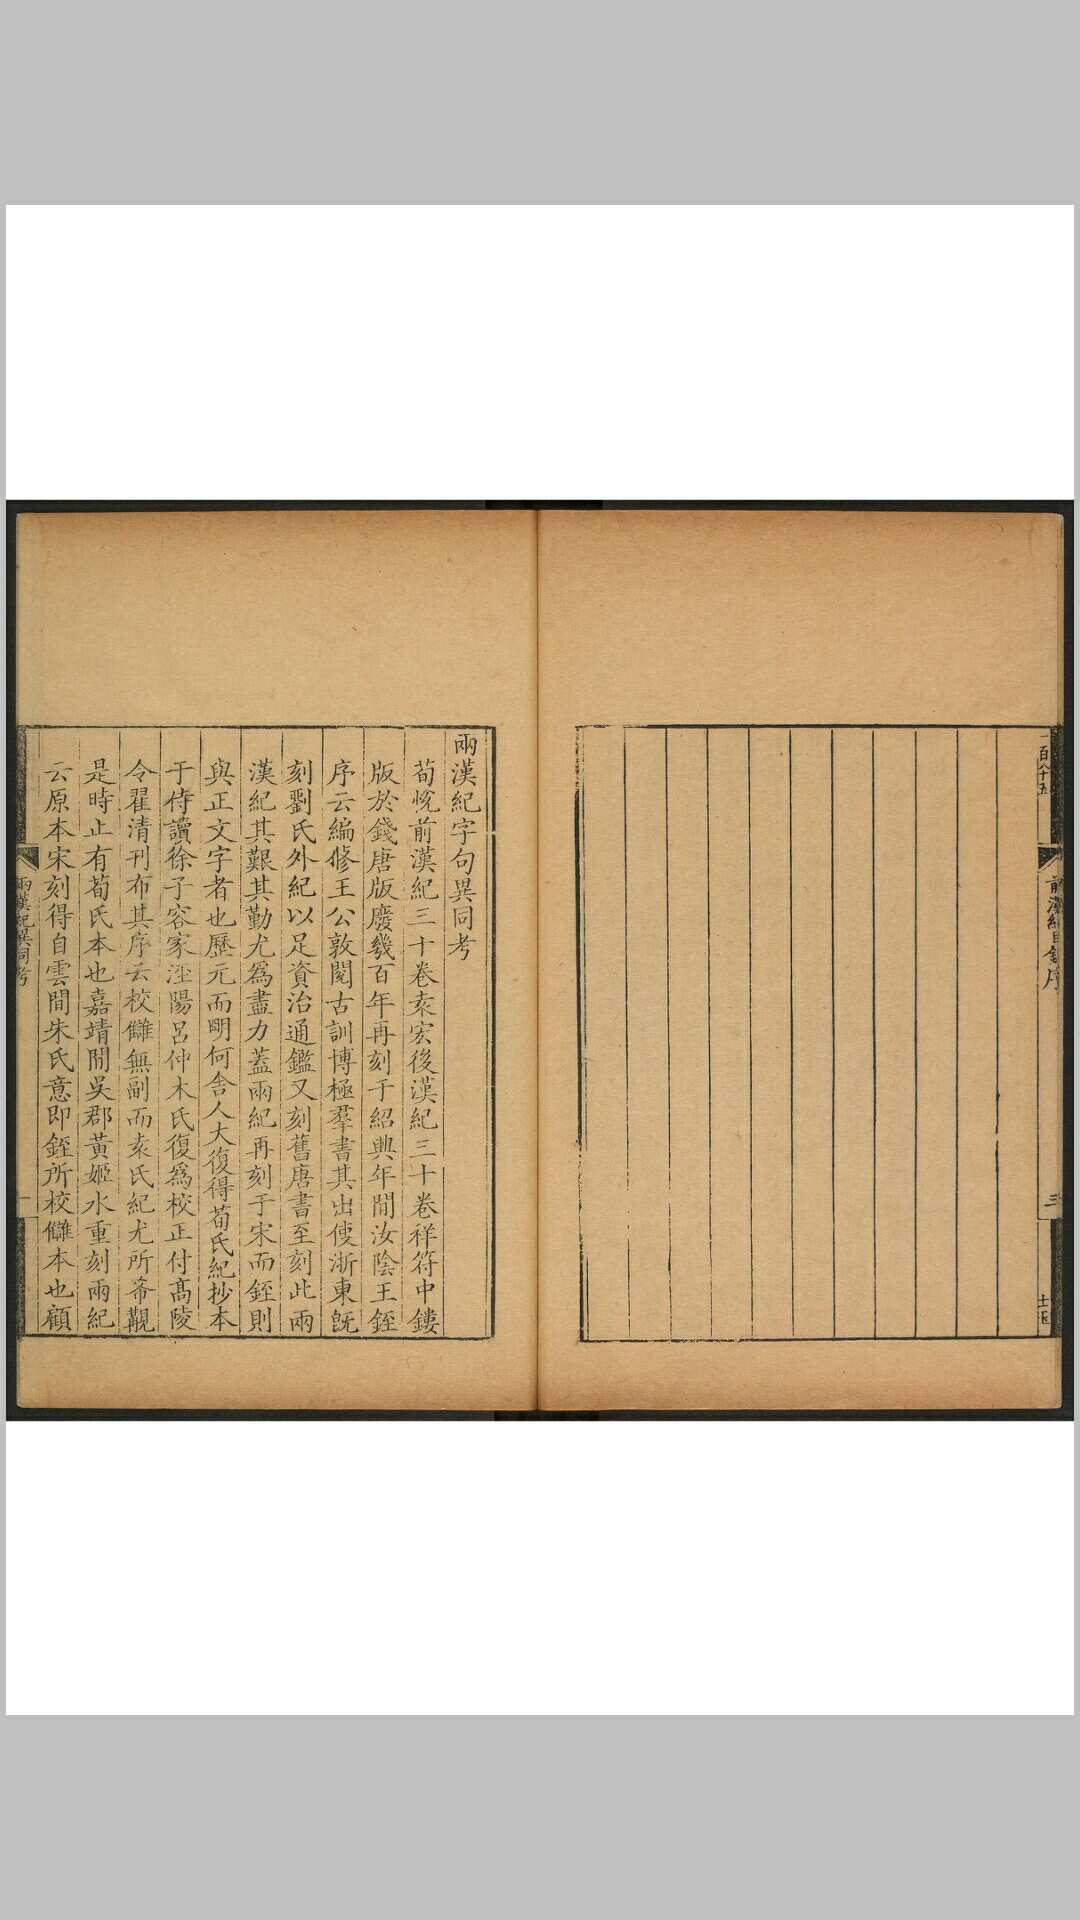 一百八十五
前漢紀目錄序
三
兩漢紀字句異同考
荀悅前漢紀三十卷袁宏後漢紀三十卷祥符中鏤
版於錢唐版廢幾百年再刻于紹興年閒汝陰王銍
序云編修王公敦閱古訓博極羣書其出使浙東旣
刻劉氏外紀以足資治通鑑又刻舊唐書至刻此兩
漢紀其艱其勤尤爲盡力蓋兩紀再刻于宋而銍則
與正文字者也歷元而明何舍人大復得荀氏紀抄本
于侍讀徐子容家涇陽呂仲木氏復爲校正付髙陵
令翟清刊布其序云校讎無副而袁氏紀尤所希覯
是時止有荀氏本也嘉靖閒吳郡黃姬水重刻兩紀
云原本宋刻得自雲閒朱氏意即銍所校讎本也顧
兩漢紀異同考
一